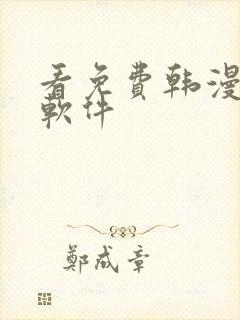 看免費韩漫
軟件
鄭成章